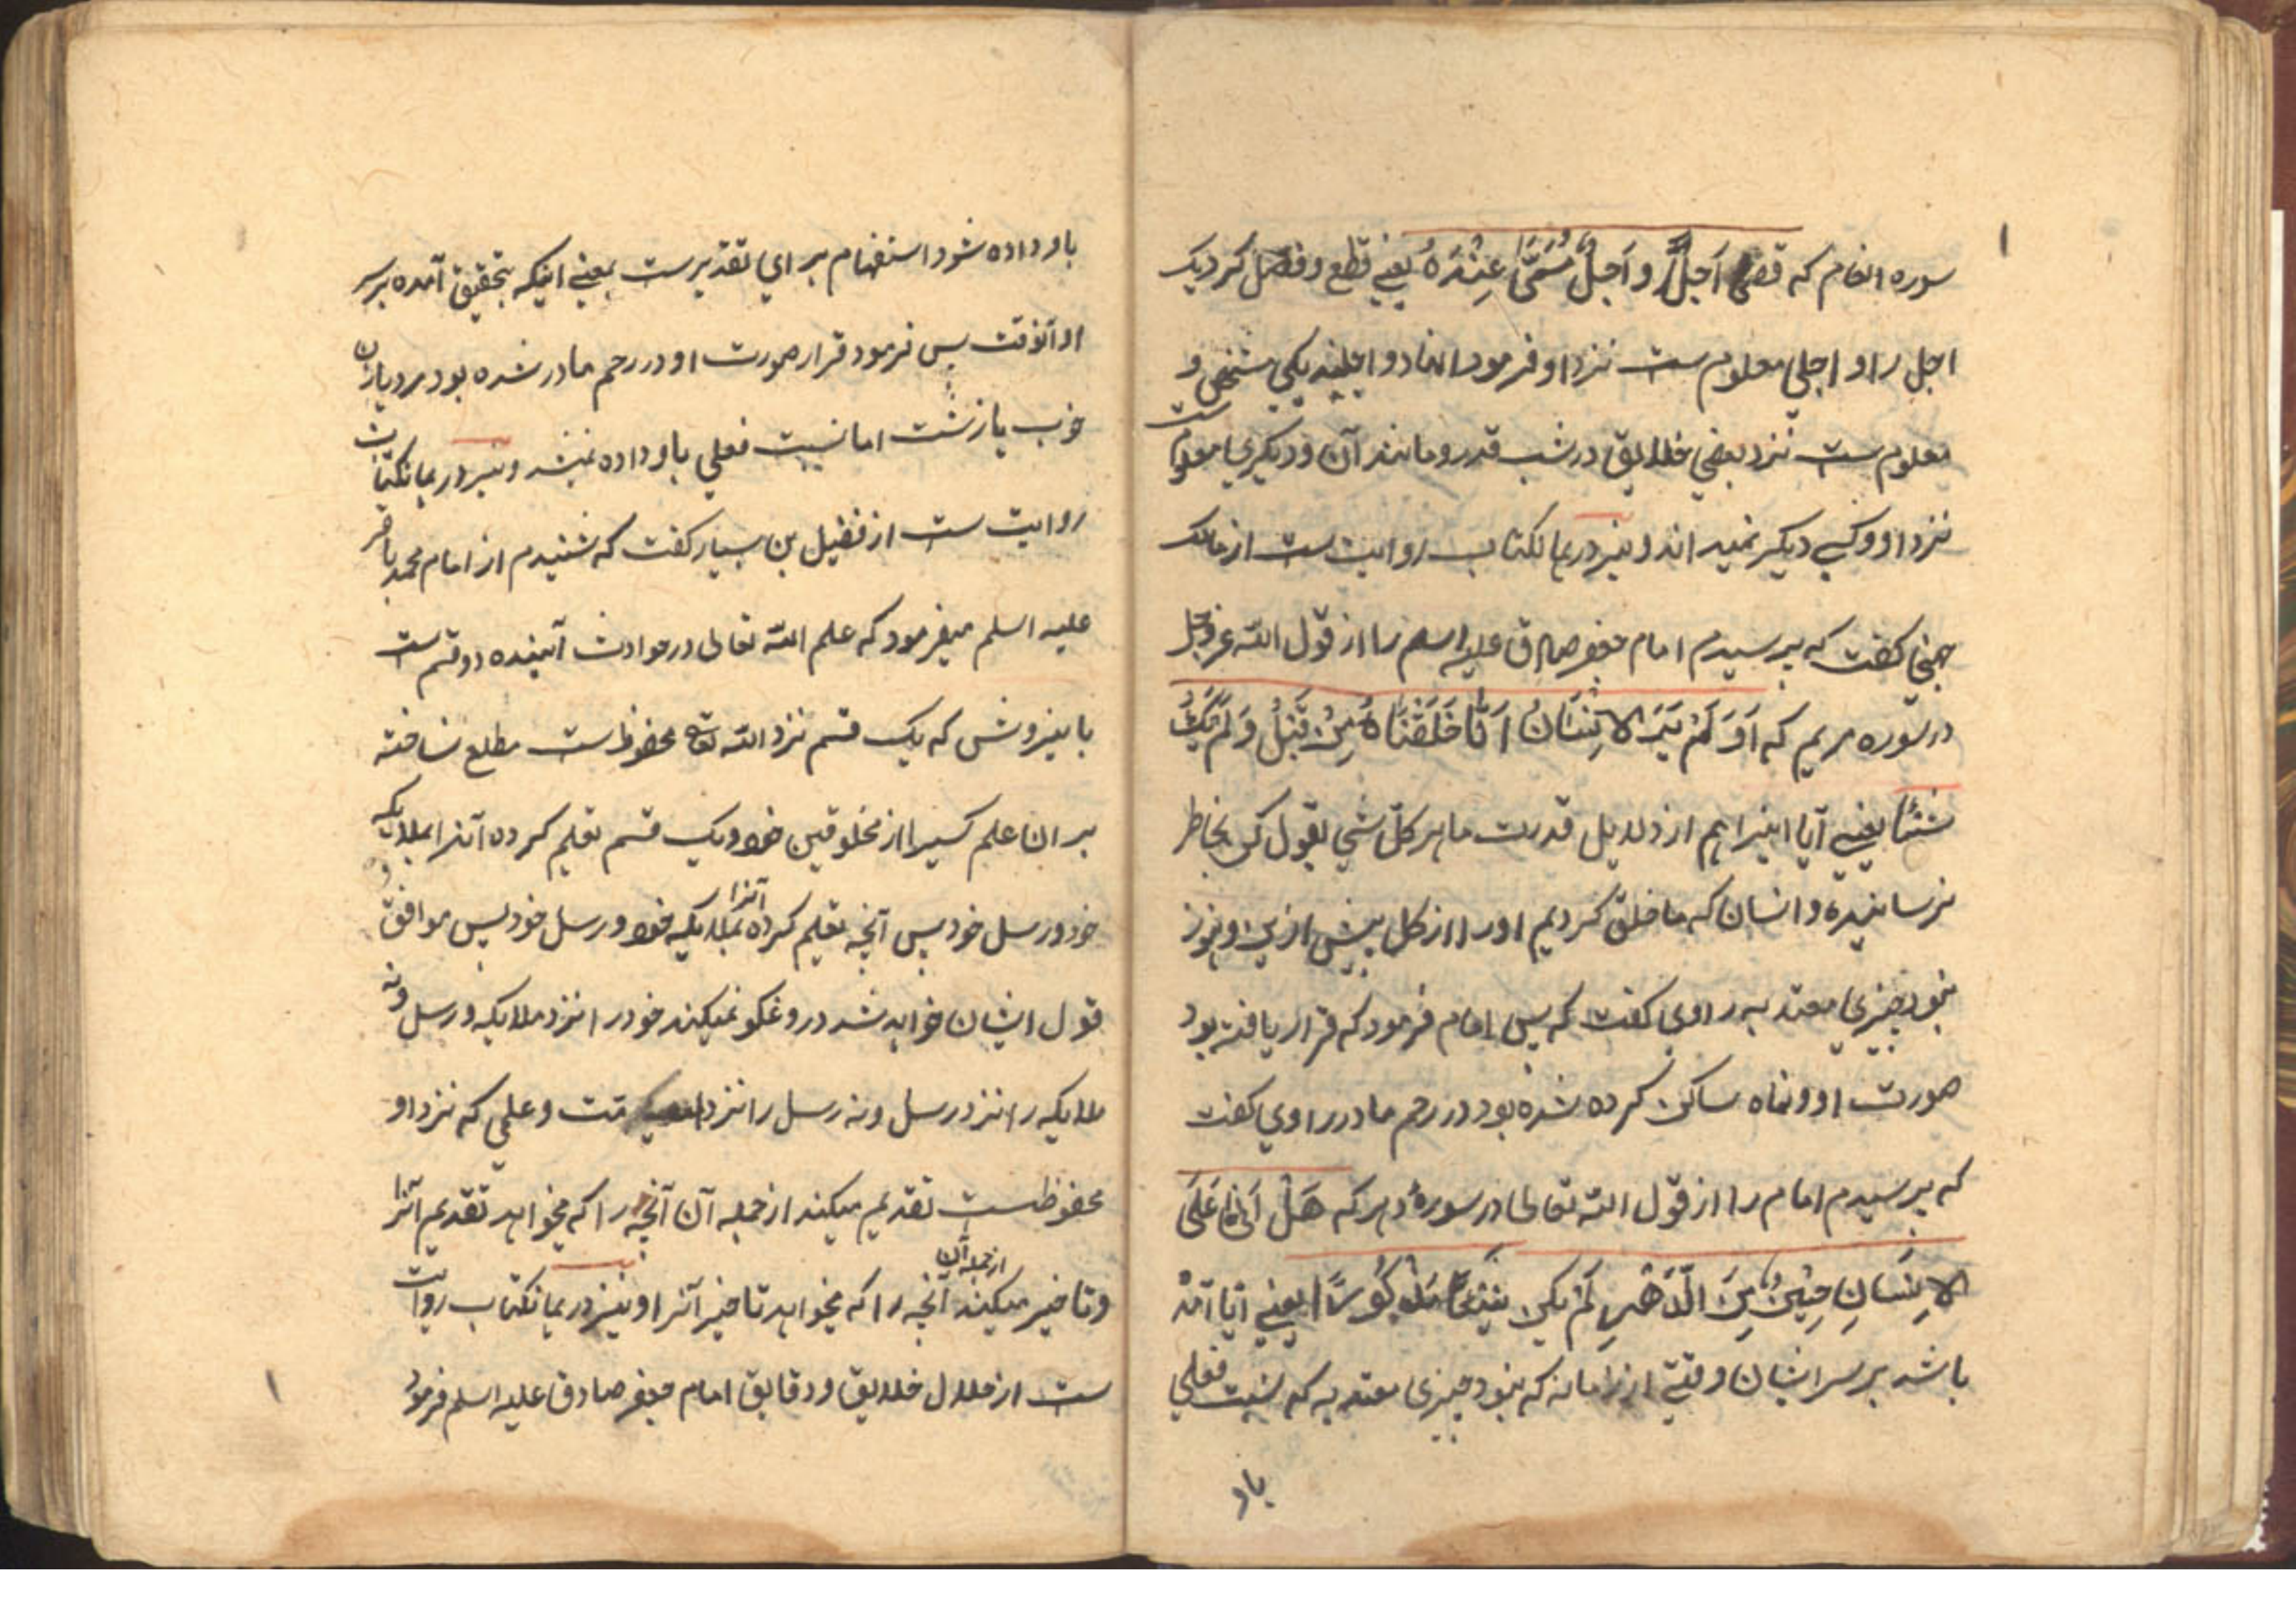 سوره انعام که قضی اَجَلٌ و اَجَلٌ مُسَمًّی عِنْدَهُ یعنی قطع و فصل کرد یک
اجل را و اجلی معلوم ست نزد او فرمود انها دو اجلند یکی مشخص و
معلوم ست نزد بعضی خلایق در شب قدر و مانند آن و دیکری معلوم ست
نزد او و کسی دیکر نمیداند و نیز در همانکتاب روایت ست از مالک
جهنی کفت که پرسیدم امام جعفر صادق علیه اسلم را از قول الله عزوجل
در سوره مریم که اَوَلَمْ یَرَ الاِنْسَانُ اَنَّا خَلَقْنَاهُ مِنْ قَبْلُ وَلَمْ یَکُ
شَیْئًا یعنی آیا اینرا هم از دلایل قدرت ما بر کل شی بقول کن بخاطر
نرسانیده و انسان که ما خلق کردیم او را از کل پیش ازین و هنوز
نبود چیزی معتد به راوی کفت که پس امام فرمود که قرار یافته بود
صورت او و نماه ساکن کرده شده بود در رحم مادر راوی کفت
که پرسیدم امام را از قول الله تعالی در سورهٔ دهر که هَلْ اَتَی عَلَی
الاِنْسَانِ حِیْنٌ مِنَ الدَّهْرِ لَمْ یَکُنْ شَیْئًا مَذْکُورًا یعنی آیا آمد
باشد بر سر انسان وقتی از زمانه که نبود چیزی معتد به که نسبت فعلی
باو
باو داده شود استفهام برای تقدیرست بمعنی اینکه بتحقیق آمده بر سر
او آنوقت پس فرمود قرار صورت او در رحم مادر شده بود مرد یا زن
خوب یا زشت اما نسبت فعلی باو داده نمیشد و نیز در همانکتاب
روایت ست از فضیل بن یسار کفت که شنیدم از امام محمد باقر
علیه اسلم میفرمود که علم الله تعالی در حوادث آینده دو قسم ست
باینروش که یک قسم نزد الله تعالی محفوظ ست مطلع نساخته
بر ان علم کسیرا از مخلوقین خود و یک قسم تعلیم کرده آنرا بملایکه
خود و رسل خود پس آنچه تعلیم کرده آنرا بملایکه خود و رسل خود پس موافق
قول ایشان خواهد شد دروغکو نمیکند خود را نزد ملایکه و رسل و نه
ملایکه را نزد رسل و نه رسل را نزد امت و علمی که نزد او
محفوظست تقدیم میکند از جمله آن آنچه را که میخواهد تقدیم آنرا
و تاخیر میکند از جمله آن آنچه را که میخواهد تاخیر آنرا و نیز در همانکتاب روایت
ست از ملال خلایق و دقایق امام جعفر صادق علیه اسلم فرمود